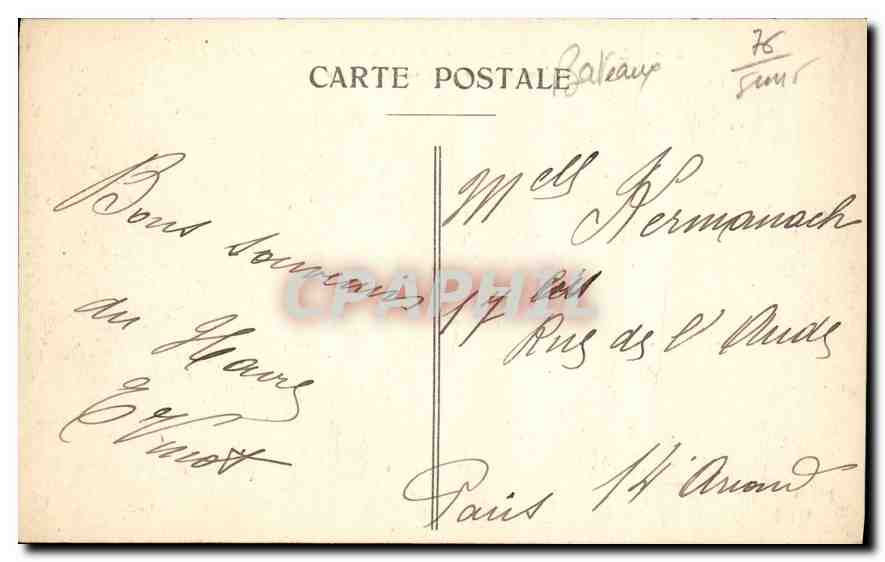 CARTE POSTALE
Bateaux
76
Bons souvenirs
du Havre
E Vinot
Melle Kermanach
17 bis
Rue de l'Aude
Paris 14 Arrond
CPAPHIL